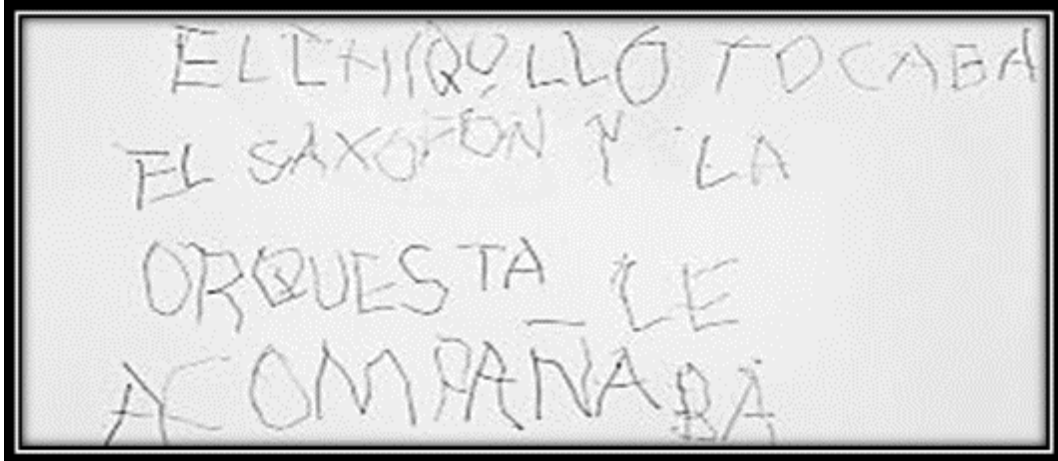 EL CHIQULLO TOCABA
EL SAXOFON Y LA
ORQUESTA LE
ACOMPAÑABA